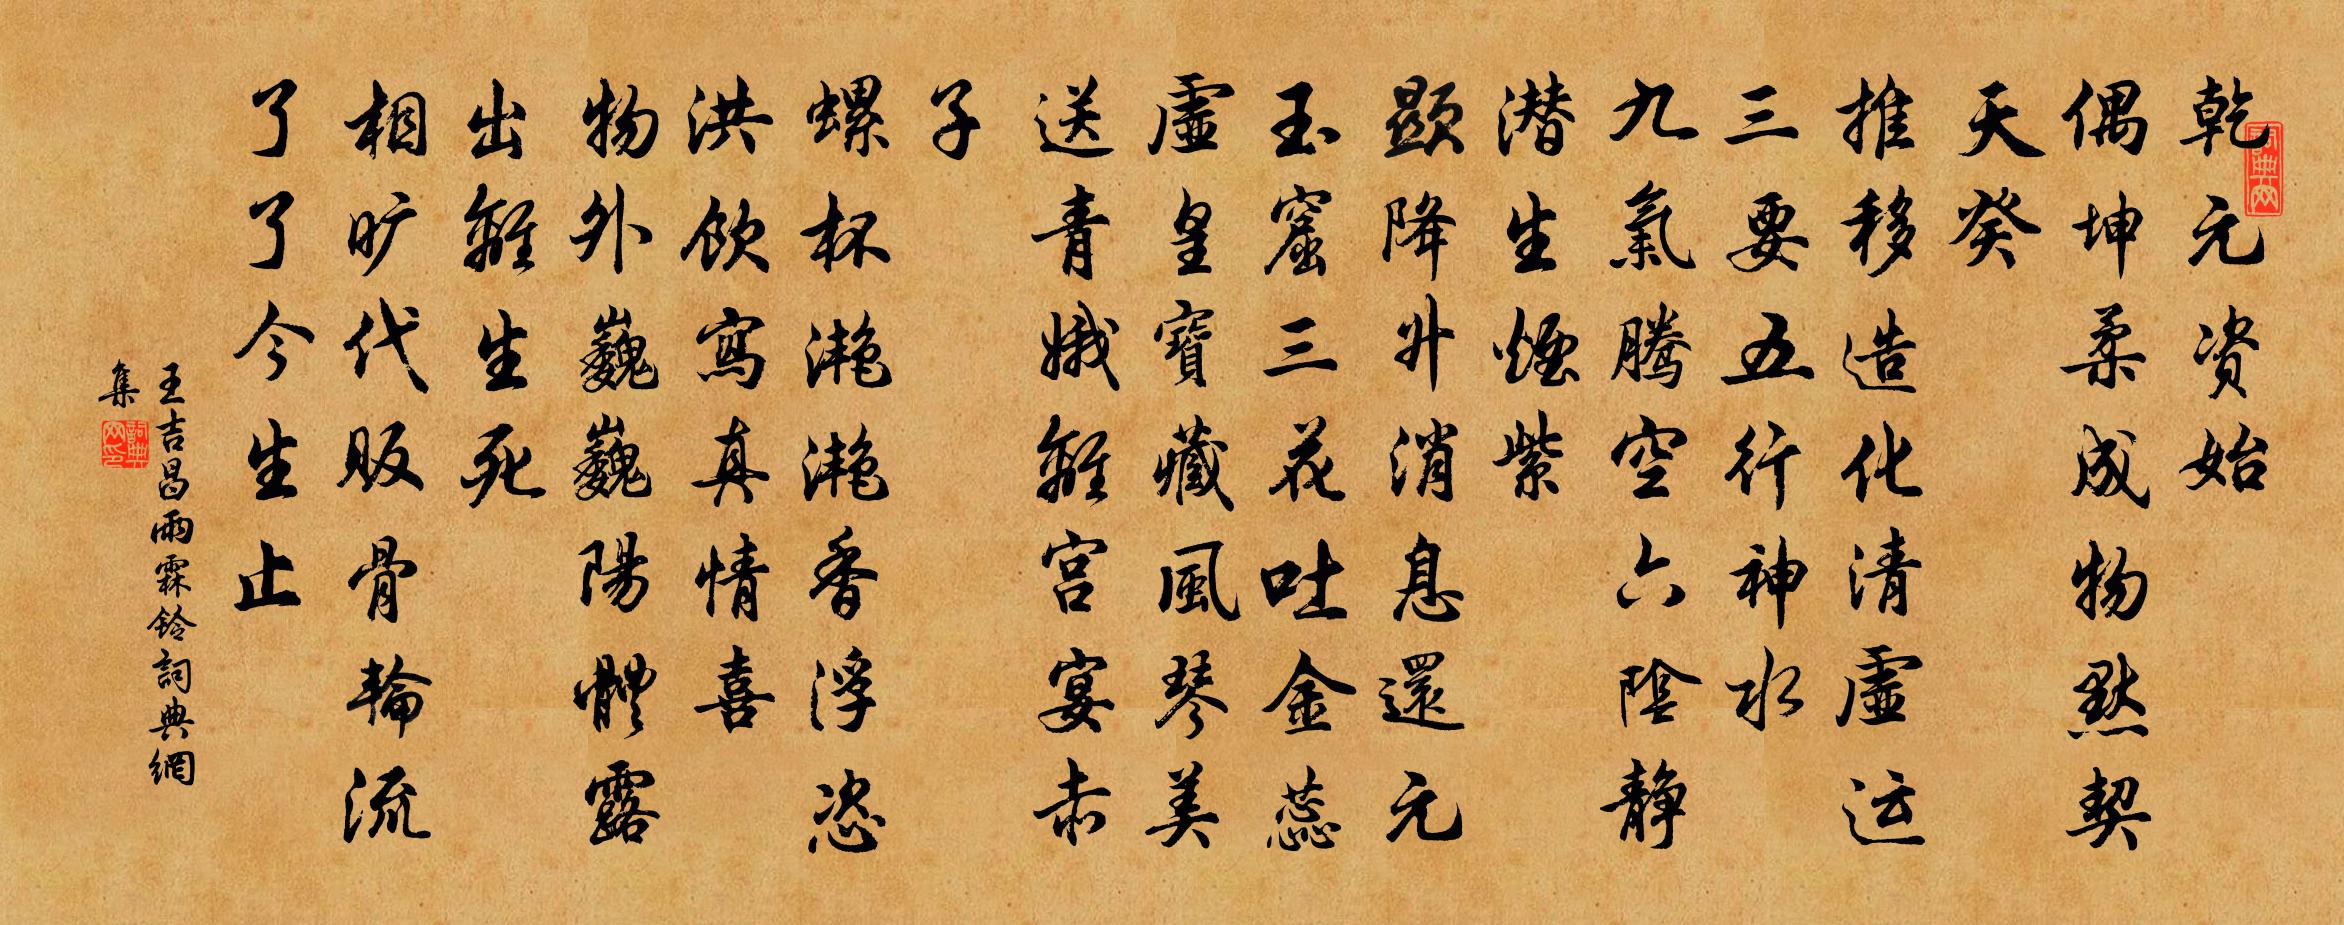 乾元资始
偶坤柔成物黙契
天癸
推移造化清虛运
三要五行神水
九氣腾空六陰静
潜生煙紫
顯降升消息還元
玉窟三花吐金蕊
虛皇寶藏風琴美
送青娥離宫宴赤
子
螺杯滟滟香浮恣
洪飲寫真情喜
物外巍巍陽體露
出離生死
相旷代販骨輪流
了了今生止
王吉昌雨霖鈴詞典網
集
詞典网
詞典网印